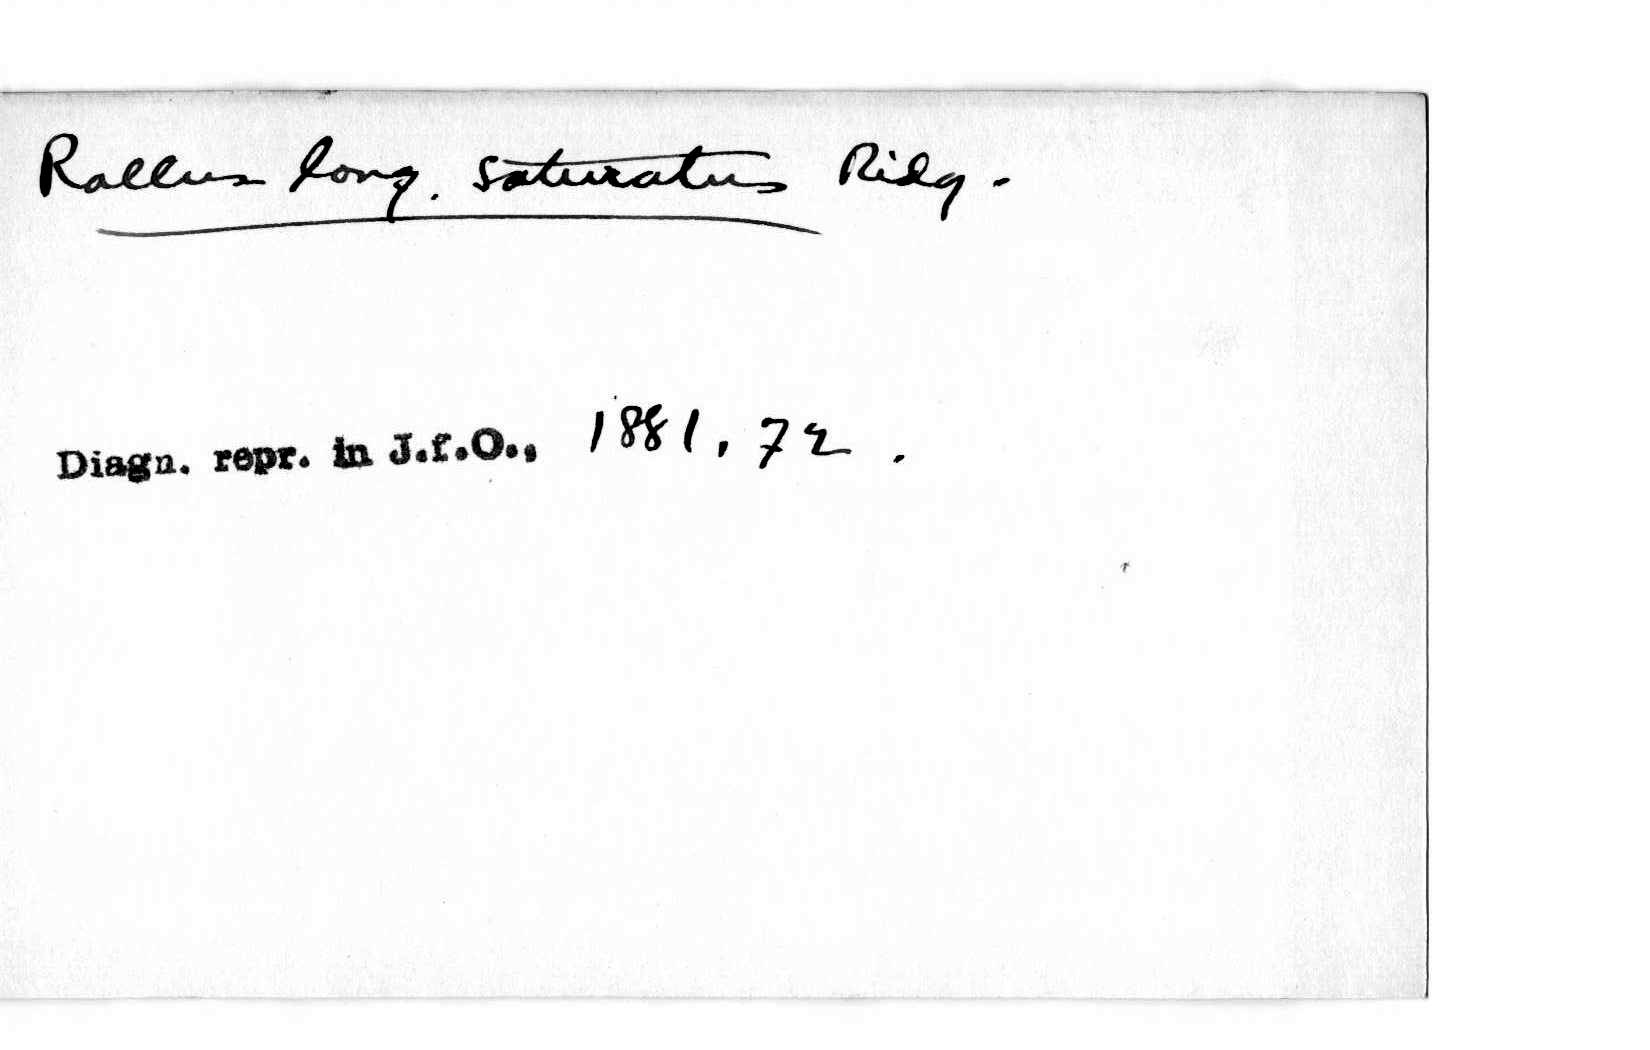 Rallus long. saturatus Ridg.
Diagn. repr. in J.f.O., 1881, 72.